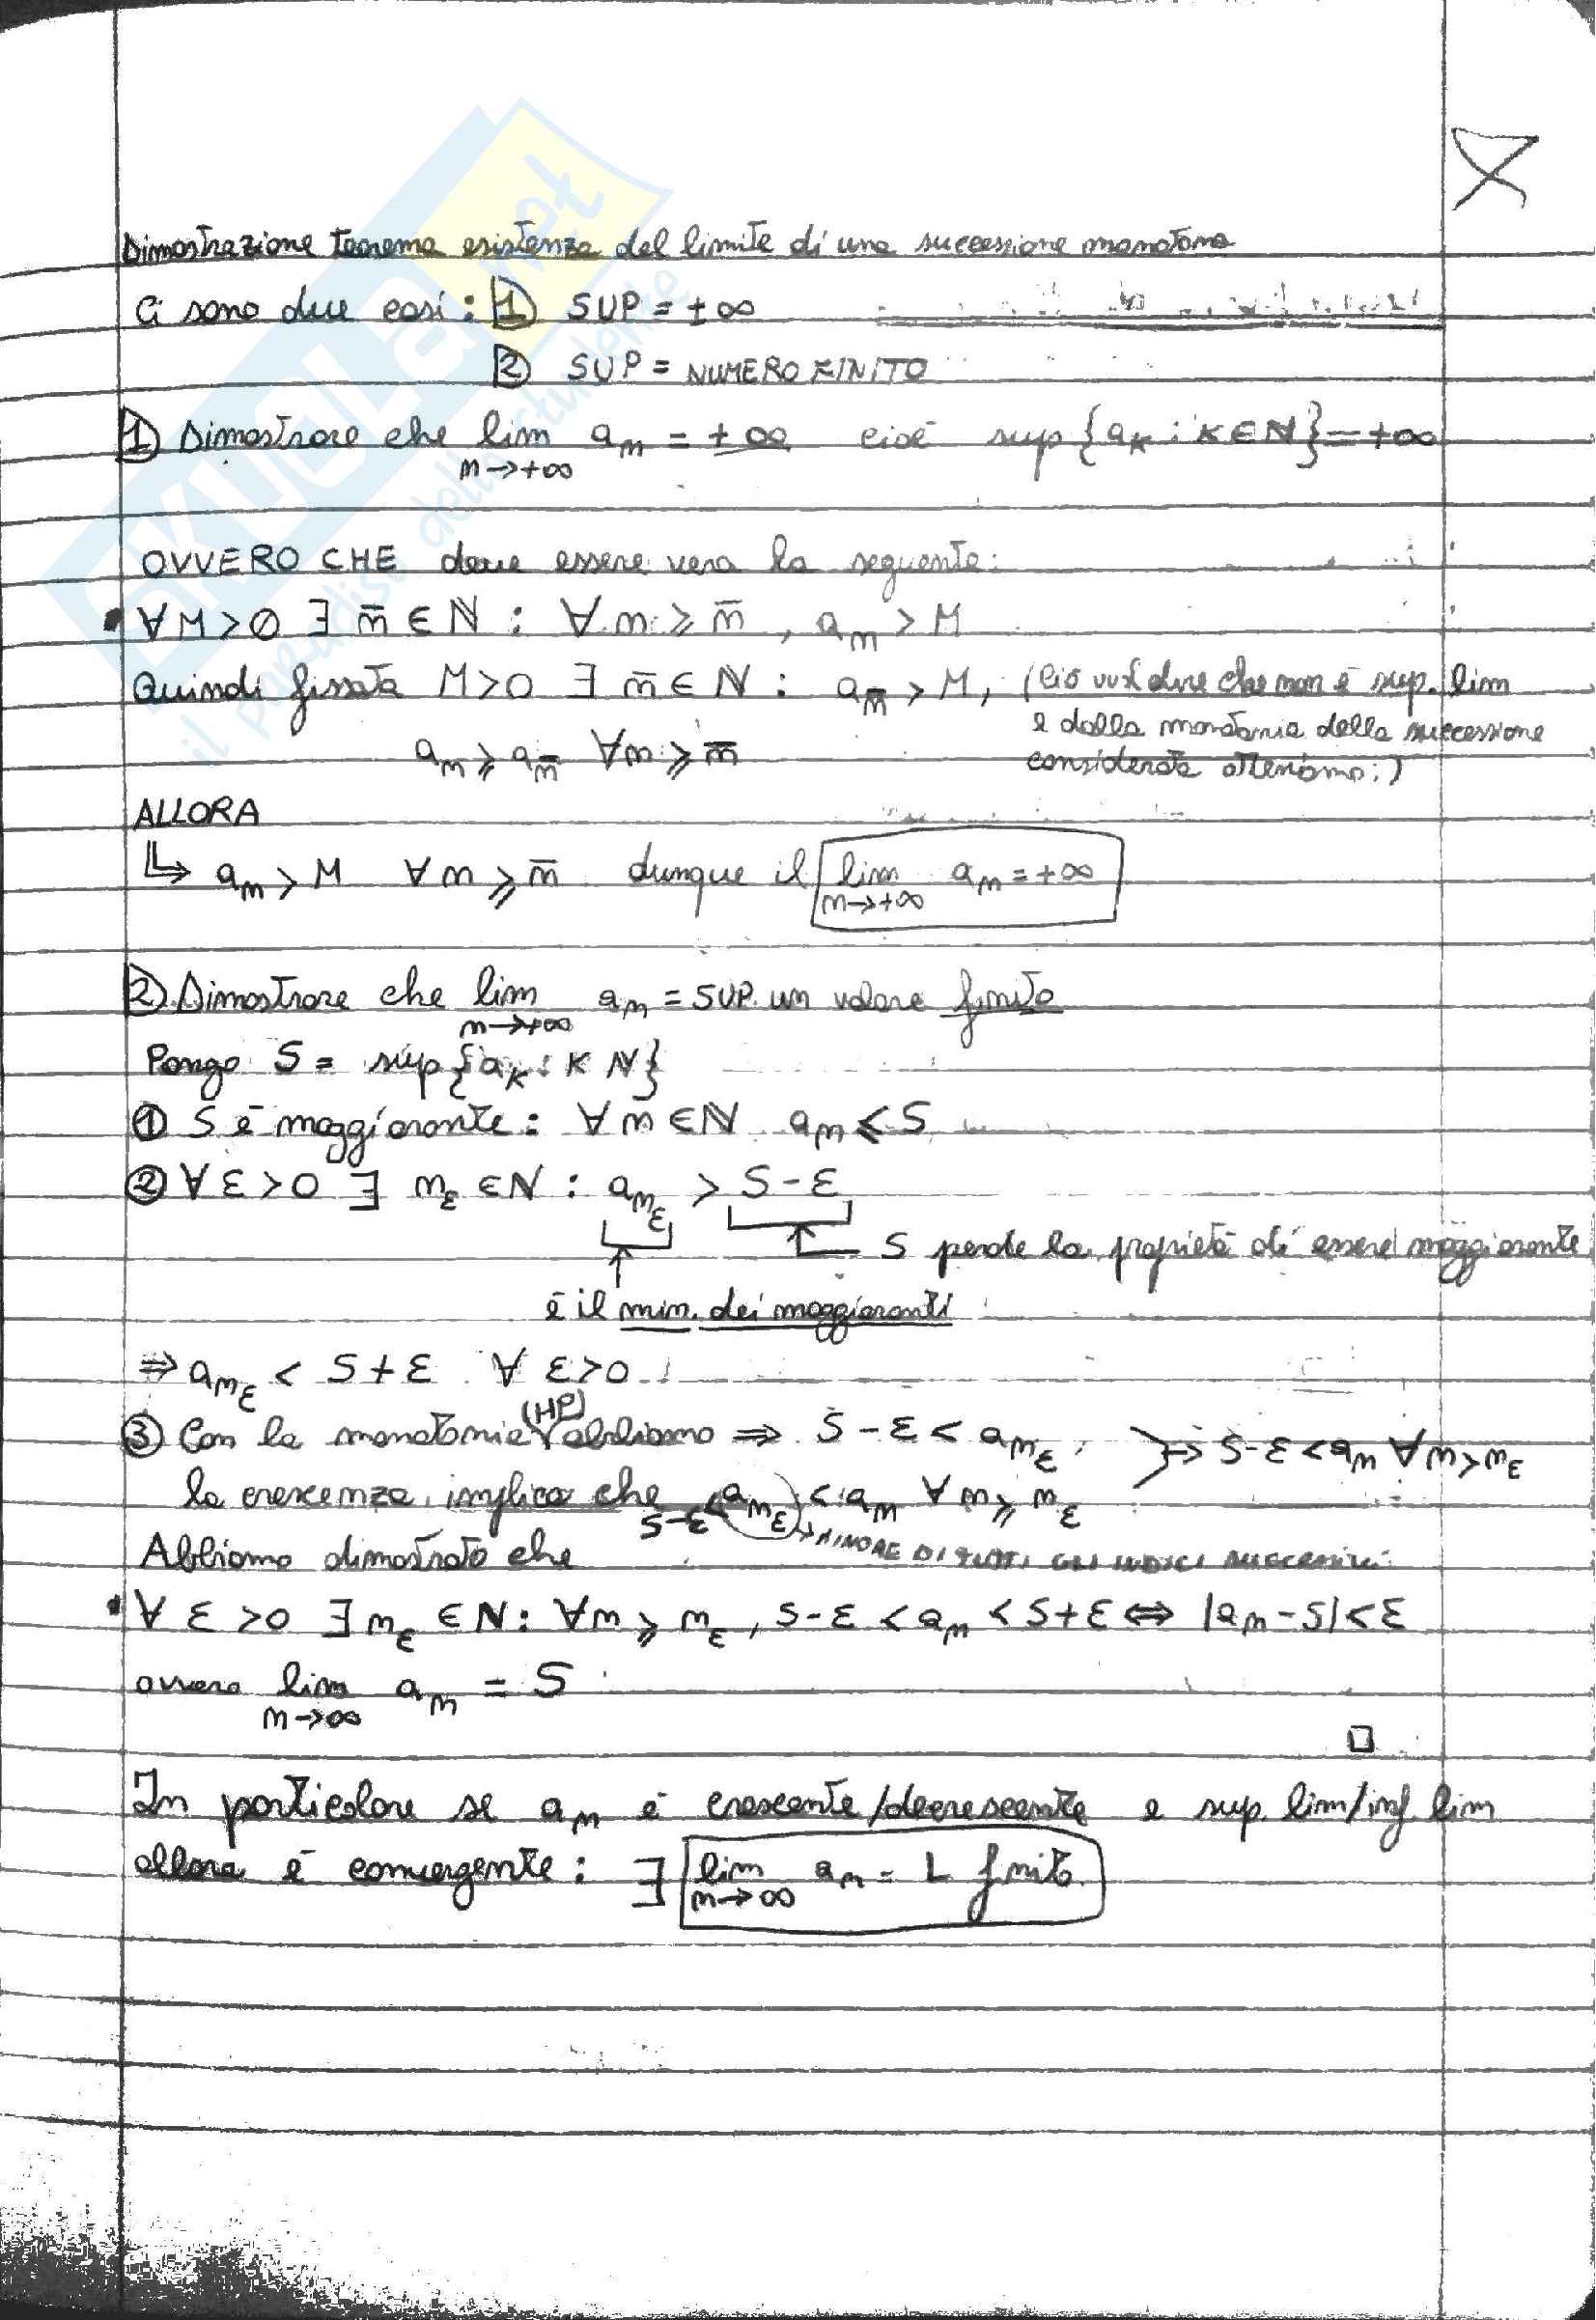 Dimostrazione teorema esistenza del limite di una successione monotona
Ci sono due casi: 1 SUP = ±∞
2 SUP = NUMERO FINITO
1 Dimostrare che lim a_n = ±∞ cioè sup{a_K : K∈N} = +∞
n→+∞
OVVERO CHE deve essere vera la seguente:
• ∀M>0 ∃ n̅∈N : ∀n ≥ n̅, a_n > M
Quindi fissata M>0 ∃ n̅∈N : a_n̅ > M, (ciò vuol dire che non è sup. lim
e dalla monotonia della successione
considerata otteniamo:)
a_n ≥ a_n̅ ∀n ≥ n̅
ALLORA
↳ a_n > M ∀n ≥ n̅ dunque il lim a_n = +∞
n→+∞
2 Dimostrare che lim a_n = SUP un valore finito
n→+∞
Pongo S = sup{a_K : K N}
① S è maggiorante: ∀n∈N a_n ≤ S
② ∀ε>0 ∃ n_ε∈N : a_n_ε > S-ε
S perde la proprietà di essere maggiorante
è il min. dei maggioranti
⇒ a_n_ε < S+ε ∀ε>0
③ Con la monotonia (HP) abbiamo ⇒ S-ε < a_n_ε, ⇒ S-ε < a_n ∀n>n_ε
la crescenza implica che S-ε < a_n_ε < a_n ∀n ≥ n_ε
→ MINORE DI TUTTI GLI INDICI successivi
Abbiamo dimostrato che
• ∀ε>0 ∃n_ε∈N: ∀n ≥ n_ε, S-ε < a_n < S+ε ⇔ |a_n-S|<ε
ovvero lim a_n = S
n→∞
□
In particolare se a_n è crescente/decrescente e sup. lim/inf. lim
allora è convergente: ∃ lim a_n = L finito.
n→∞